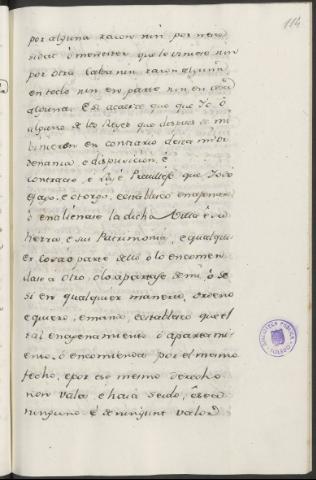 114
por alguna razon nin por nece
sidat ó menester que lo viniere nin
por otra Cabsa nin razon alguna
en todo nin en parte nin en cosa
alguna. E si acaece que que Yo, ó
alguno de los Reyes que despues de mi
vinieren en contrario desta mi or
denanza e disposicion, é
contracto, e Ley é Previllejo que Yo
fago, e otorgo, e establezco enagenare
ó enalienare la dicha Villa é su
tierra, e sus Patrimonio, e qualqui
er cosa o parte dello ó lo encomen
dase á otro, ó lo apartase de mi, ó de
si en qualquier manera, ordeno
e quiero, e mando, e establezco que el
tal enagenamiento, ó apartami
ento, ó encomienda por el mismo
fecho, e por ese mesmo derecho
non vala e haia seido, é sea
ninguno é de ningunt valor
BIBLIOTECA PUBLICA
TOLEDO